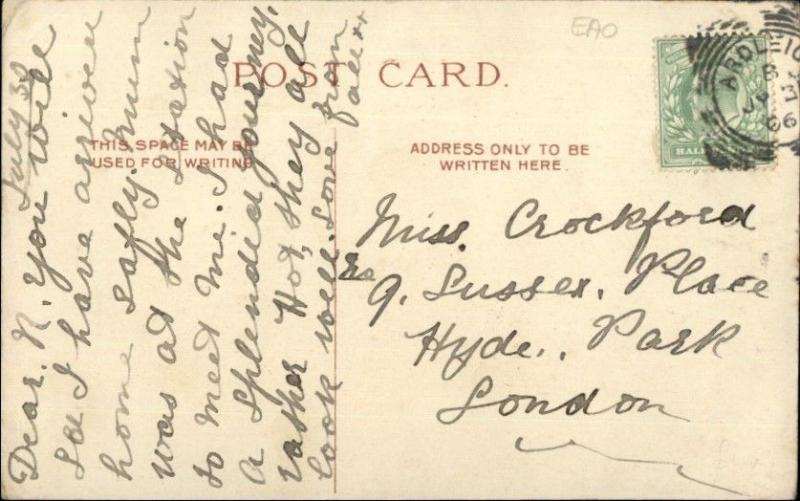 EAO
POST CARD.
THIS SPACE MAY BE
USED FOR WRITING
ADDRESS ONLY TO BE
WRITTEN HERE.
ARDLEIG
JY 31
06
HALF
July 30
Dear. N. You will
see I have arrived
home safly. Mum
was at the Station
to meet me. I had
a splendid journey,
rather Hot, they all
look well. Love from
all xx
Miss. Crockford
9. Sussex. Place
Hyde., Park
London